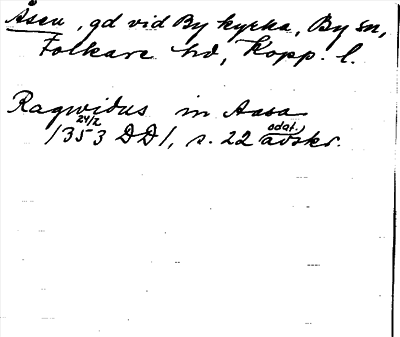 Åsen, gd vid By kyrka, By sn,
Folkare hd, Kopp. l.
Ragwidus in Aasa
24/2
1353 DD1, s. 22 odat. avskr.